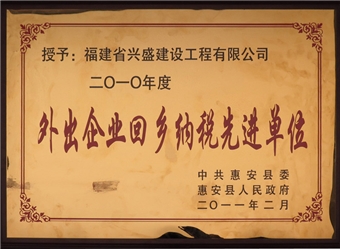 授予：福建省兴盛建设工程有限公司
二〇一〇年度
外出企业回乡纳税先进单位
中共惠安县委
惠安县人民政府
二〇一一年二月